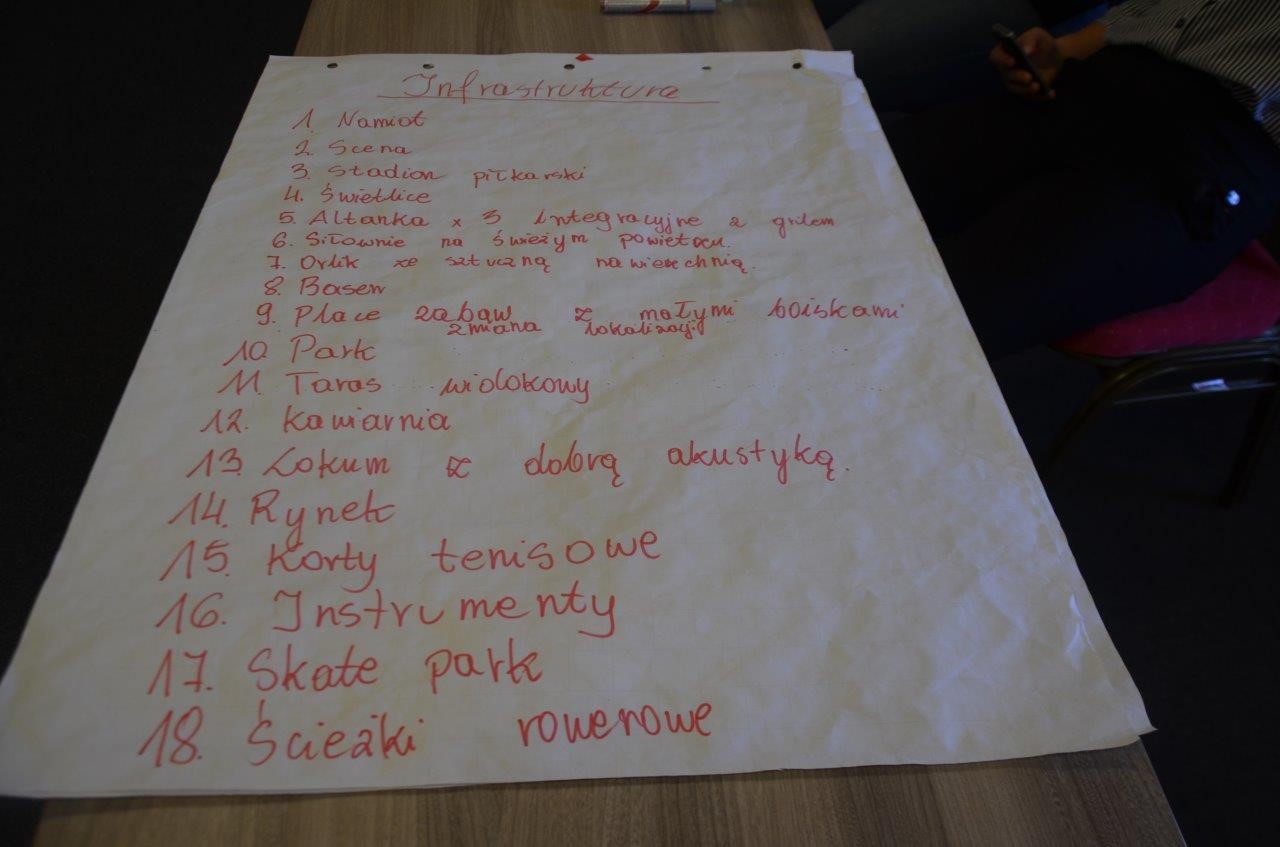 Infrastruktura
1. Namiot
2. Scena
3. Stadion piłkarski
4. Świetlice
5. Altanka x 3 integracyjne z grilem
6. Siłownie na świeżym powietrzu.
7. Orlik ze sztuczną nawierzchnią.
8. Basen
9. Place zabaw z małymi boiskami
zmiana lokalizacji
10 Park
11. Taras widokowy
12. Kawiarnia
13. Lokum z dobrą akustyką.
14. Rynek
15. Korty tenisowe
16. Instrumenty
17. Skate park
18. Ścieżki rowerowe